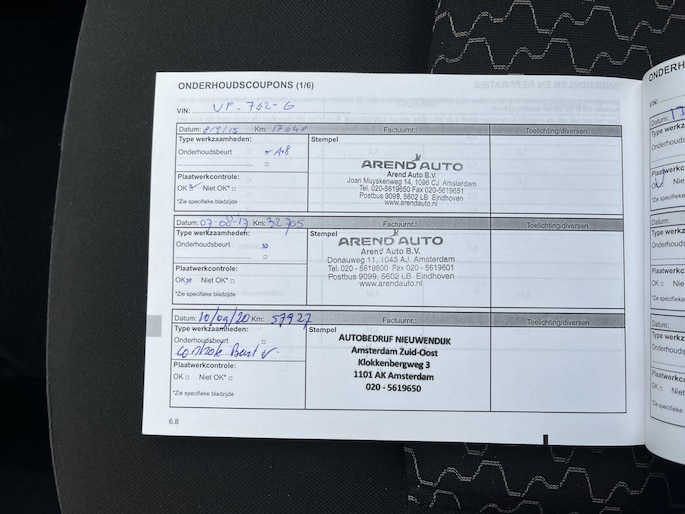 ONDERHOUDSCOUPONS (1/6)
VIN: VF-762-G
Datum: 8/9/15 Km: 17048 Factuurnr.: Toelichting/diversen
Type werkzaamheden: Stempel
Onderhoudsbeurt A+B
AREND AUTO
Arend Auto B.V.
Joan Muyskenweg 14, 1096 CJ Amsterdam
Tel. 020-5619650 Fax 020-5619651
Postbus 9099, 5602 LB Eindhoven
www.arendauto.nl
Plaatwerkcontrole:
OK Niet OK*
*Zie specifieke bladzijde
Datum: 07-08-17 Km: 32705 Factuurnr.: Toelichting/diversen
Type werkzaamheden: Stempel
Onderhoudsbeurt
AREND AUTO
Arend Auto B.V.
Donauweg 11, 1043 AJ Amsterdam
Tel. 020 - 5619600 Fax 020 - 5619601
Postbus 9099, 5602 LB Eindhoven
www.arendauto.nl
Plaatwerkcontrole:
OK Niet OK*
*Zie specifieke bladzijde
Datum: 10/09/20 Km: 57927 Factuurnr.: Toelichting/diversen
Type werkzaamheden: Stempel
Onderhoudsbeurt
Controle Beurt
AUTOBEDRIJF NIEUWENDIJK
Amsterdam Zuid-Oost
Klokkenbergweg 3
1101 AK Amsterdam
020 - 5619650
Plaatwerkcontrole:
OK Niet OK*
*Zie specifieke bladzijde
6.8
ONDERH
VIN:
Datum:
Type werkz
Onderhouds
Plaatwerkc
OK
*Zie specifi
Datum:
Type werkz
Onderhouds
Plaatwerkc
OK
*Zie specifi
Datum:
Type werkz
Onderhouds
Plaatwerkc
OK
*Zie specifi